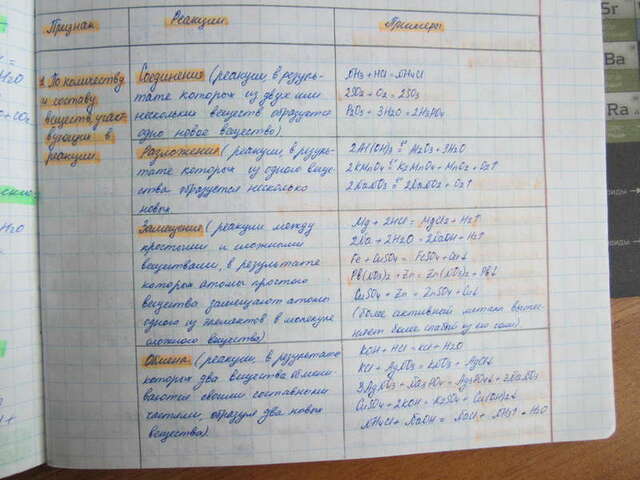 Признак
Реакции
Примеры
1. По количеству
и составу
веществ, участ-
вующих в
реакции.
Соединения (реакции, в резуль-
тате которых из двух или
нескольких веществ образуется
одно новое вещество).
NH3 + HCl = NH4Cl
2SO2 + O2 = 2SO3
P2O5 + 3H2O = 2H3PO4
Разложения (реакции, в резуль-
тате которых из одного веще-
ства образуется несколько
новых
2Al(OH)3 = Al2O3 + 3H2O
2KMnO4 = K2MnO4 + MnO2 + O2↑
2NaNO3 = 2NaNO2 + O2↑
Замещения (реакции между
простыми и сложными
веществами, в результате
которых атомы простого
вещества замещают атомы
одного из элементов в молекуле
сложного вещества)
Mg + 2HCl = MgCl2 + H2↑
2Na + 2H2O = 2NaOH + H2↑
Fe + CuSO4 = FeSO4 + Cu↓
Pb(NO3)2 + Zn = Zn(NO3)2 + Pb↓
CuSO4 + Zn = ZnSO4 + Cu↓
(более активный металл вытес-
няет более слабый из его соли)
Обмена (реакции, в результате
которых два вещества обмени-
ваются своими составными
частями, образуя два новых
вещества).
KOH + HCl = KCl + H2O
KCl + AgNO3 = KNO3 + AgCl↓
3AgNO3 + Na3PO4 = Ag3PO4↓ + 3NaNO3
CuSO4 + 2KOH = K2SO4 + Cu(OH)2↓
NH4Cl + NaOH = NaCl + NH3↑ + H2O
Sr
Ba
Ra